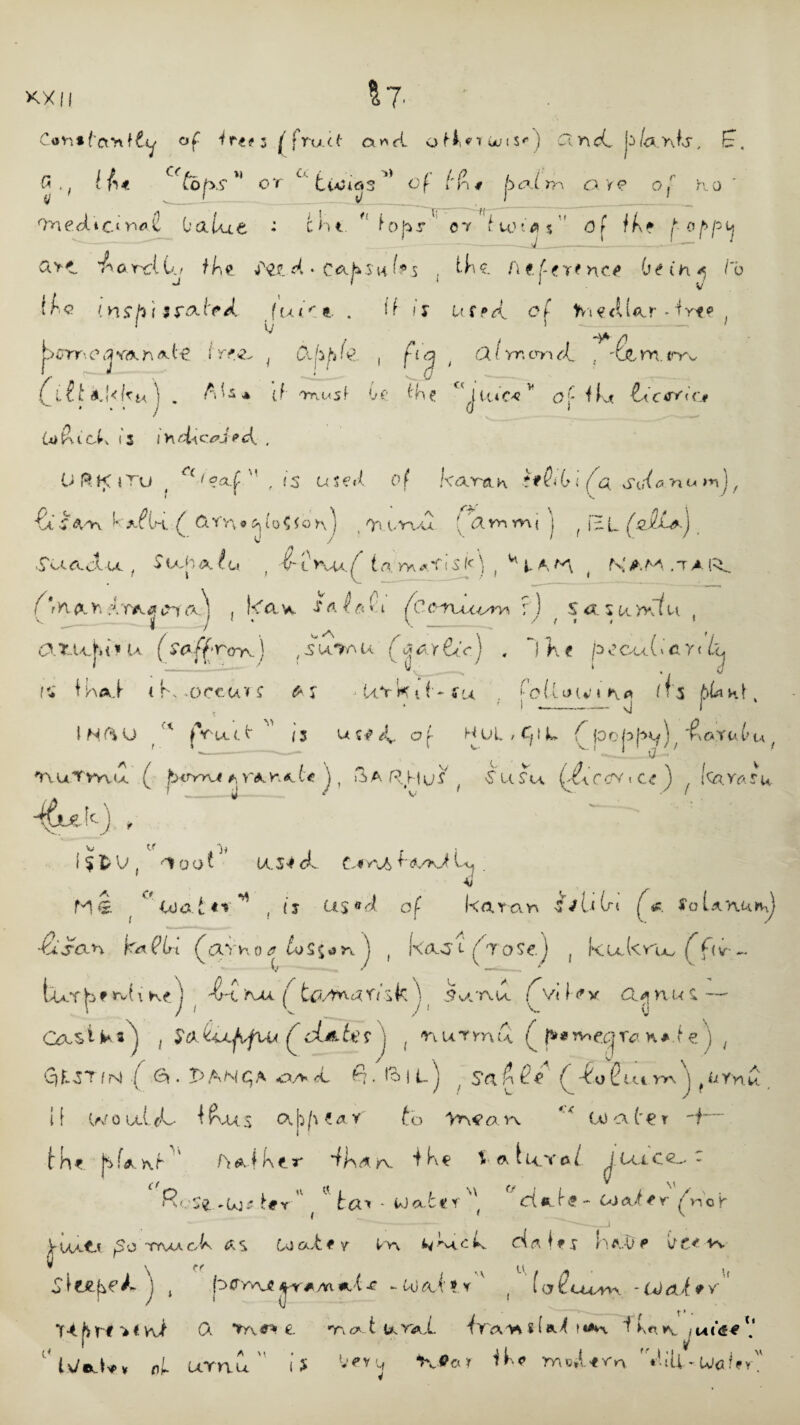 XXII 17.
Constantly of trees (fruit and otherwise) and plants, E.
G., the "tops" or "twigs" of the palm are of no
medicinal value : the "tops" or "twigs" of the poppy
are hardly the seed-capsules, the reference being to
the inspissated juice. It is used of medlar-tree,
pomegranate tree, apple, fig, almond,
. Also it must be the "juice" of the licorice
which is indicated.
URKITU, "leaf", is used of karan
lišan kalbi (arnoglosson), nīnū (ammi),
suadu, šupalu, bīnu (tamarisk),
(mandragora), kan
azupiru (saffron), šumu (garlic). The peculiarity
is that it occurs as urkit-su, following its plant.
INBU "fruit" is used of HUL.GIL (poppy), harubu,
nurmū (pomegranate), BARHUŠ, šušu (licorice), karašu
(leek),
IŠDU, "root" used constantly.
MÊ "water", is used of karan šêlibi (a solanum)
lišan kalbi (arnoglosson), kasî (rose), kukru (fir-
turpentine), bīnu (tamarisk), šunu (vitex agnus-
castus), saluppu (dates), nurmū (pomegranate),
It would thus appear to mean "water of
the plant" rather than the natural juice:
"Rose-water", "tar-water", "date-water (not
juice so much as water in which dates have been
steeped), "pomegranate-water", "lolium-water"
represent a more natural translation than "juice".
"Water of urnu" is very near the modern "dill-water".